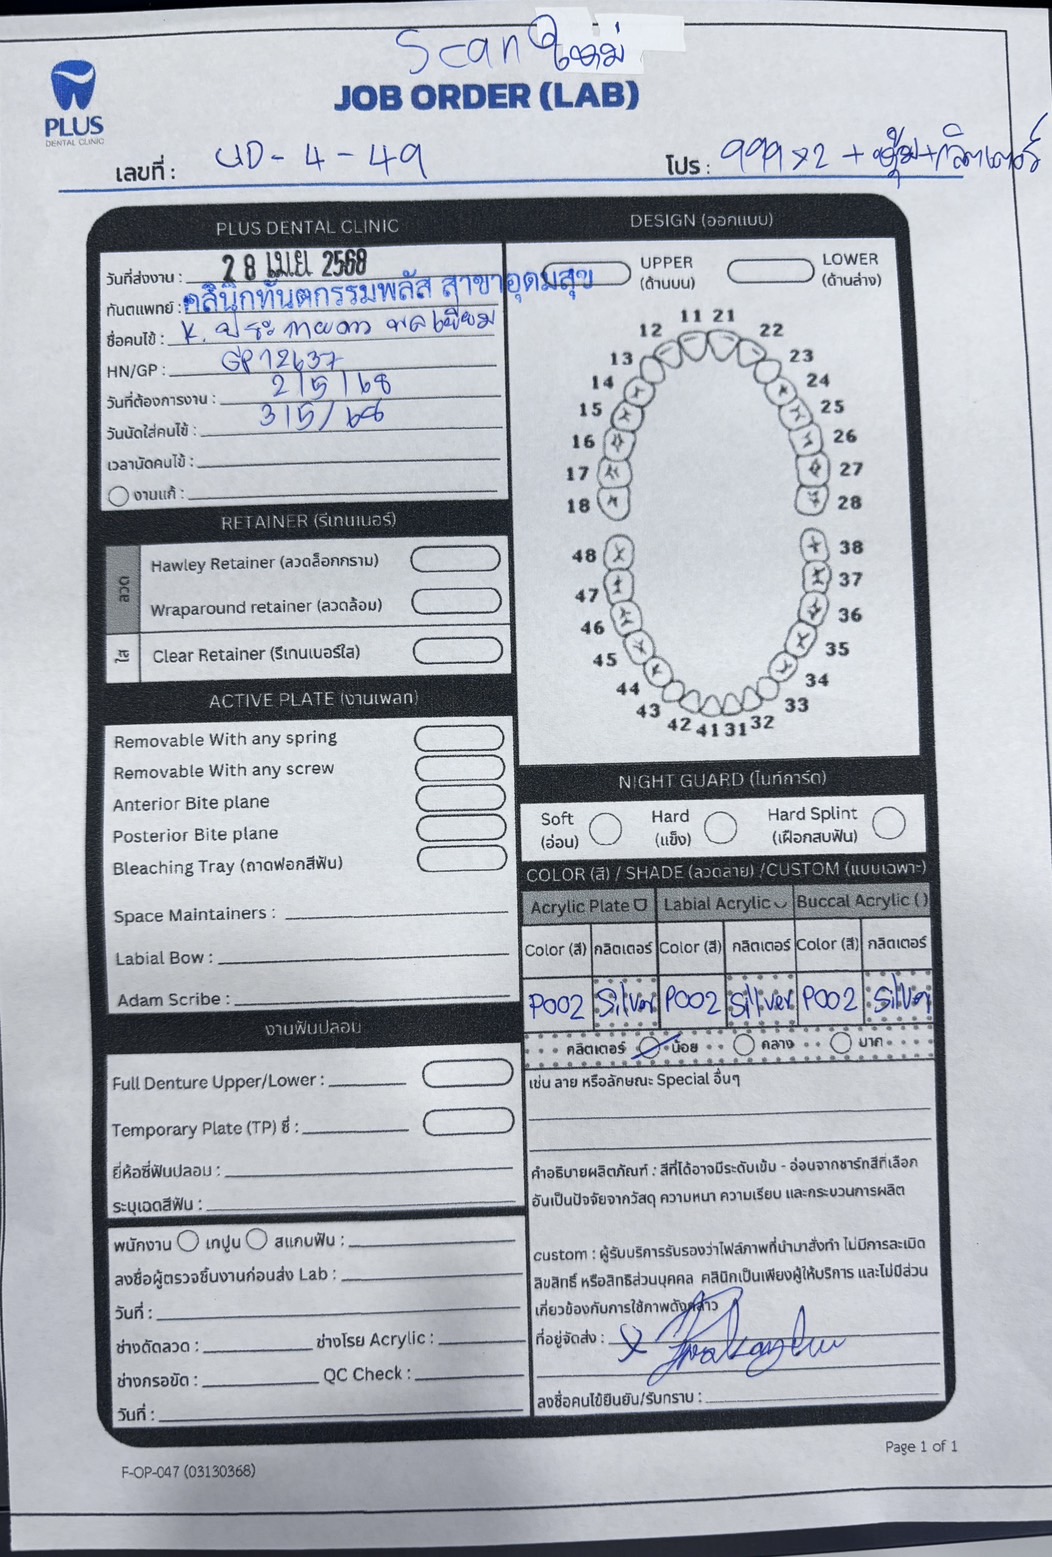 Scan ใหม่
PLUS
DENTAL CLINIC
JOB ORDER (LAB)
เลขที่ : UD-4-49
โปร : 999x2 + หุ้ม+กลิตเตอร์
PLUS DENTAL CLINIC
วันที่ส่งงาน : 28 เม.ย. 2568
ทันตแพทย์ : คลินิกทันตกรรมพลัส สาขาอุดมสุข
ชื่อคนไข้ : K. ประกายดาว
HN/GP : GP12637
วันที่ต้องการงาน : 2/5/68
วันนัดใส่คนไข้ : 3/5/68
เวลานัดคนไข้ :
งานแก้ :
RETAINER (รีเทนเนอร์)
ลวด
Hawley Retainer (ลวดล็อกกราม)
Wraparound retainer (ลวดล้อม)
ใส
Clear Retainer (รีเทนเนอร์ใส)
ACTIVE PLATE (งานเพลท)
Removable With any spring
Removable With any screw
Anterior Bite plane
Posterior Bite plane
Bleaching Tray (ถาดฟอกสีฟัน)
Space Maintainers :
Labial Bow :
Adam Scribe :
งานฟันปลอม
Full Denture Upper/Lower :
Temporary Plate (TP) ซี่ :
ยี่ห้อซี่ฟันปลอม :
ระบุเฉดสีฟัน :
พนักงาน เทปูน สแกนฟัน :
ลงชื่อผู้ตรวจชิ้นงานก่อนส่ง Lab :
วันที่ :
ช่างดัดลวด : ช่างโรย Acrylic :
ช่างกรอขัด : QC Check :
วันที่ :
DESIGN (ออกแบบ)
UPPER
(ด้านบน)
LOWER
(ด้านล่าง)
11 21
12 22
13 23
14 24
15 25
16 26
17 27
18 28
48 38
47 37
46 36
45 35
44 34
43 33
42 41 31 32
NIGHT GUARD (ไนท์การ์ด)
Soft
(อ่อน)
Hard
(แข็ง)
Hard Splint
(เฝือกสบฟัน)
COLOR (สี) / SHADE (ลวดลาย) /CUSTOM (แบบเฉพาะ)
Acrylic Plate Labial Acrylic Buccal Acrylic ()
Color (สี) กลิตเตอร์ Color (สี) กลิตเตอร์ Color (สี) กลิตเตอร์
P002 Silver P002 Sillver P002 Silver
กลิตเตอร์ น้อย กลาง มาก
เช่น ลาย หรือลักษณะ Special อื่นๆ
คำอธิบายผลิตภัณฑ์ : สีที่ได้อาจมีระดับเข้ม - อ่อนจากชาร์ทสีที่เลือก
อันเป็นปัจจัยจากวัสดุ ความหนา ความเรียบ และกระบวนการผลิต
custom : ผู้รับบริการรับรองว่าไฟล์ภาพที่นำมาสั่งทำ ไม่มีการละเมิด
ลิขสิทธิ์ หรือสิทธิส่วนบุคคล คลินิกเป็นเพียงผู้ให้บริการ และไม่มีส่วน
เกี่ยวข้องกับการใช้ภาพดังกล่าว
ที่อยู่จัดส่ง :
ลงชื่อคนไข้ยืนยัน/รับทราบ :
Page 1 of 1
F-OP-047 (03130368)